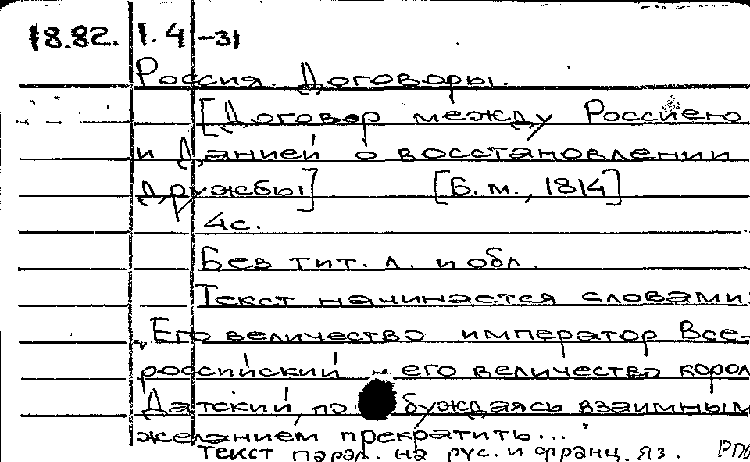 18.82. 1.4-31
Россия. Договоры.
[Договор между Россиею
и Данией о восстановлении
дружбы] [Б.м., 1814]
4с.
Без тит. л. и обл.
Текст начинается словами:
"Его величество император Все-
российский и его величество корол
Датский, побуждаясь взаимным
желанием прекратить...
Текст парал. на рус. и франц. яз.